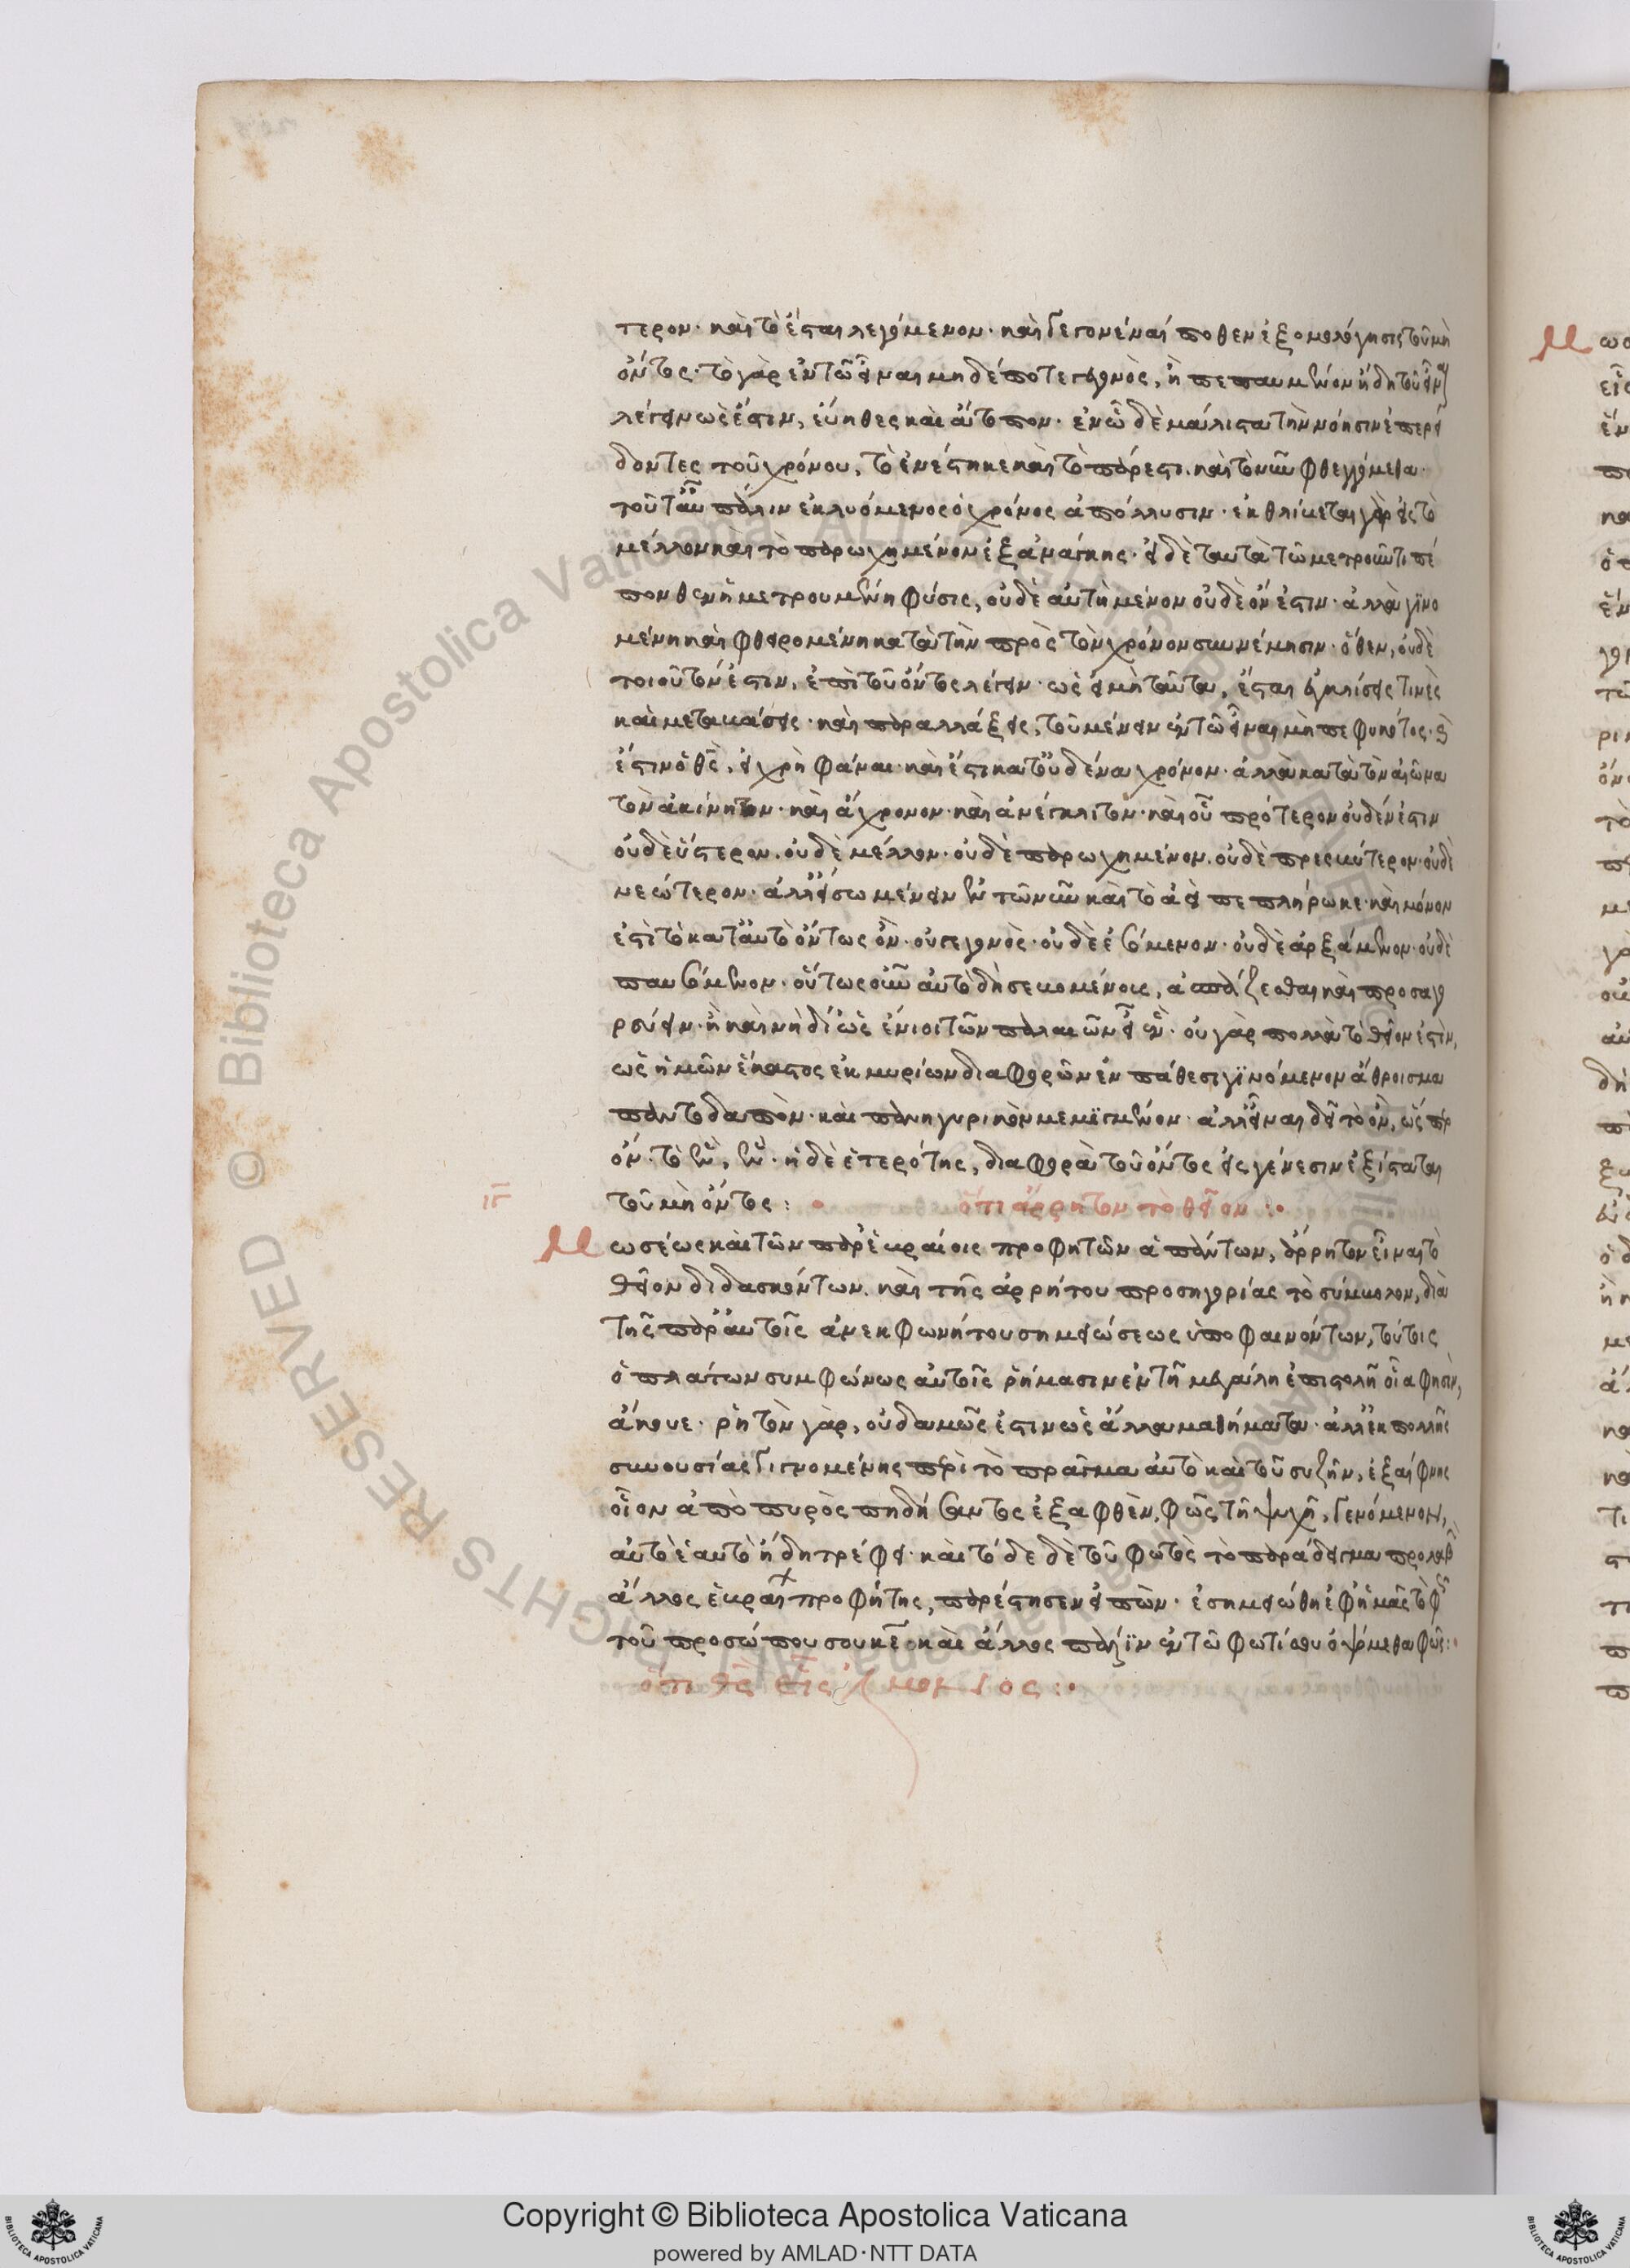 τερον· καὶ τὸ ἔσται λεγόμενον· καὶ γεγονέναι ποθεν ἐξομολόγησις τοῦ μὴ
ὄντος· τὸ γὰρ ἐν τῶ εἶναι μηδέποτε γεγονὸς, ἢ πεπαυμένον ἤδη τοῦ εἶναι
λέγειν ὡς ἔστιν, εὔηθες καὶ ἄτοπον· ἐν ὧ δὲ μάλιστα τὴν νόησιν ἐπερεί
δοντες τοῦ χρόνου, τὸ ἐνέστηκε καὶ τὸ πάρεστι. καὶ τὸ νῦν φθεγγόμεθα·
τοῦτ' αὖ πάλιν ἐκλυόμενος ὁ χρόνος ἀπόλλυσιν· ἐκθλίβεται γὰρ εἰς τὸ
μέλλον καὶ τὸ παρωχημένον ἐξ ἀνάγκης· εἰ δὲ ταυτὰ τῶ μετροῦντι πέ
πονθεν ἡ μετρουμένη φύσις, οὐδὲ αὐτὴ μένον οὐδὲ ὄν ἐστιν· ἀλλὰ γινο
μένη καὶ φθειρομένη κατὰ τὴν πρὸς τὸν χρόνον συννέμησιν· ὅθεν, οὐδὲ
τοιοῦτόν ἐστιν, ἐπὶ τοῦ ὄντος λέγειν· ὡς εἰ μὴ ταῦτα, ἔσται ἐγκλίσεις τινὲς
καὶ μεταβάσεις· καὶ παραλλάξεις, τοῦ μένειν ἐν τῶ εἶναι μὴ πεφυκότος·
ἔστιν ὁ θς, εἰ χρὴ φάναι· καὶ ἔστι κατ' οὐδένα χρόνον· ἀλλὰ κατὰ τὸν αἰῶνα
τὸν ἀκίνητον· καὶ ἄχρονον· καὶ ἀνέγκλιτον· καὶ οὗ πρότερον οὐδέν ἐστιν
οὐδὲ ὕστερον. οὐδὲ μέλλον· οὐδὲ παρωχημένον. οὐδὲ πρεσβύτερον· οὐδὲ
νεώτερον· ἀλλ' εἴσω μένειν ἐν τῶ νῦν καὶ τὸ ἀεὶ πεπλήρωκε· καὶ μόνον
ἐστὶ τὸ κατ' αὐτὸ ὄντως ὄν· οὐ γεγονὸς· οὐδὲ ἐσόμενον· οὐδὲ ἀρξάμενον· οὐδὲ
παυσόμενον· οὕτως οὖν αὐτὸ δὴ σεβομένοις, ἀσπάζεσθαι καὶ προσαγο
ρεύειν· ἢ καὶ νὴ δί' ὡς ἔνιοι τῶν παλαιῶν εἶ ἕν· οὐ γὰρ πολλὰ τὸ θεῖον ἐστὶν,
ὡς ἡμῶν ἕκαστος ἐκ μυρίων διαφορῶν ἐν πάθεσι γϊνόμενον ἄθροισμα
παντοδαπὸν· καὶ πανηγυρικὸν μεμϊγμένον· ἀλλ' εἶναι δεῖ τὸ ὂν, ὥσπερ
ὄν· τὸ ἓν, ἕν· ἡ δὲ ἑτερότης, διαφορᾶ τοῦ ὄντος εἰς γένεσιν ἐξίσταται
τοῦ μὴ ὄντος:
ιβ ὅτι ἄρρητον τὸ θεῖον:
Μωσέως καὶ τῶν παρ' ἑβραίοις προφητῶν ἁπάντων, ἄρρητον εἶναι τὸ
θεῖον διδασκόντων. καὶ τῆς ἀρρήτου προσηγορίας τὸ σύμβολον, διὰ
τῆς παρ' αὐτοῖς ἀνεκφωνήτου σημειώσεως ὑποφαινόντων, τούτοις
ὁ πλάτων συμφώνως αὐτοῖς ῥήμασιν ἐν τῆ μεγάλη ἐπιστολῆ οἷα φησὶν,
ἄκουε· ῥητὸν γὰρ, οὐδαμῶς ἐστιν ὡς ἄλλα μαθήματα· ἀλλ' ἐκ πολλῆς
συνουσίας γιγνομένης περὶ τὸ πρᾶγμα αὐτὸ καὶ τοῦ συζῆν, ἐξαίφνης
οἷον ἀπὸ πυρὸς πηδήσαντος ἐξαφθὲν, φῶς τῆ ψυχῆ, γενόμενον,
αὐτὸ ἑαυτὸ ἤδη τρέφει· καὶ τόδε δὲ τοῦ φωτὸς τὸ παράδειγμα προλαβὼν
ἄλλος ἑβραῖ προφήτης, παρέστησεν εἰπὼν· ἐσημειώθη ἐφ' ἡμᾶς τὸ φῶς
τοῦ προσώπου σου κε· καὶ ἄλλος πάλιν ἐν τῶ φωτί σου ὀψόμεθα φῶς:
ὅτι θς εἷς μόνος: